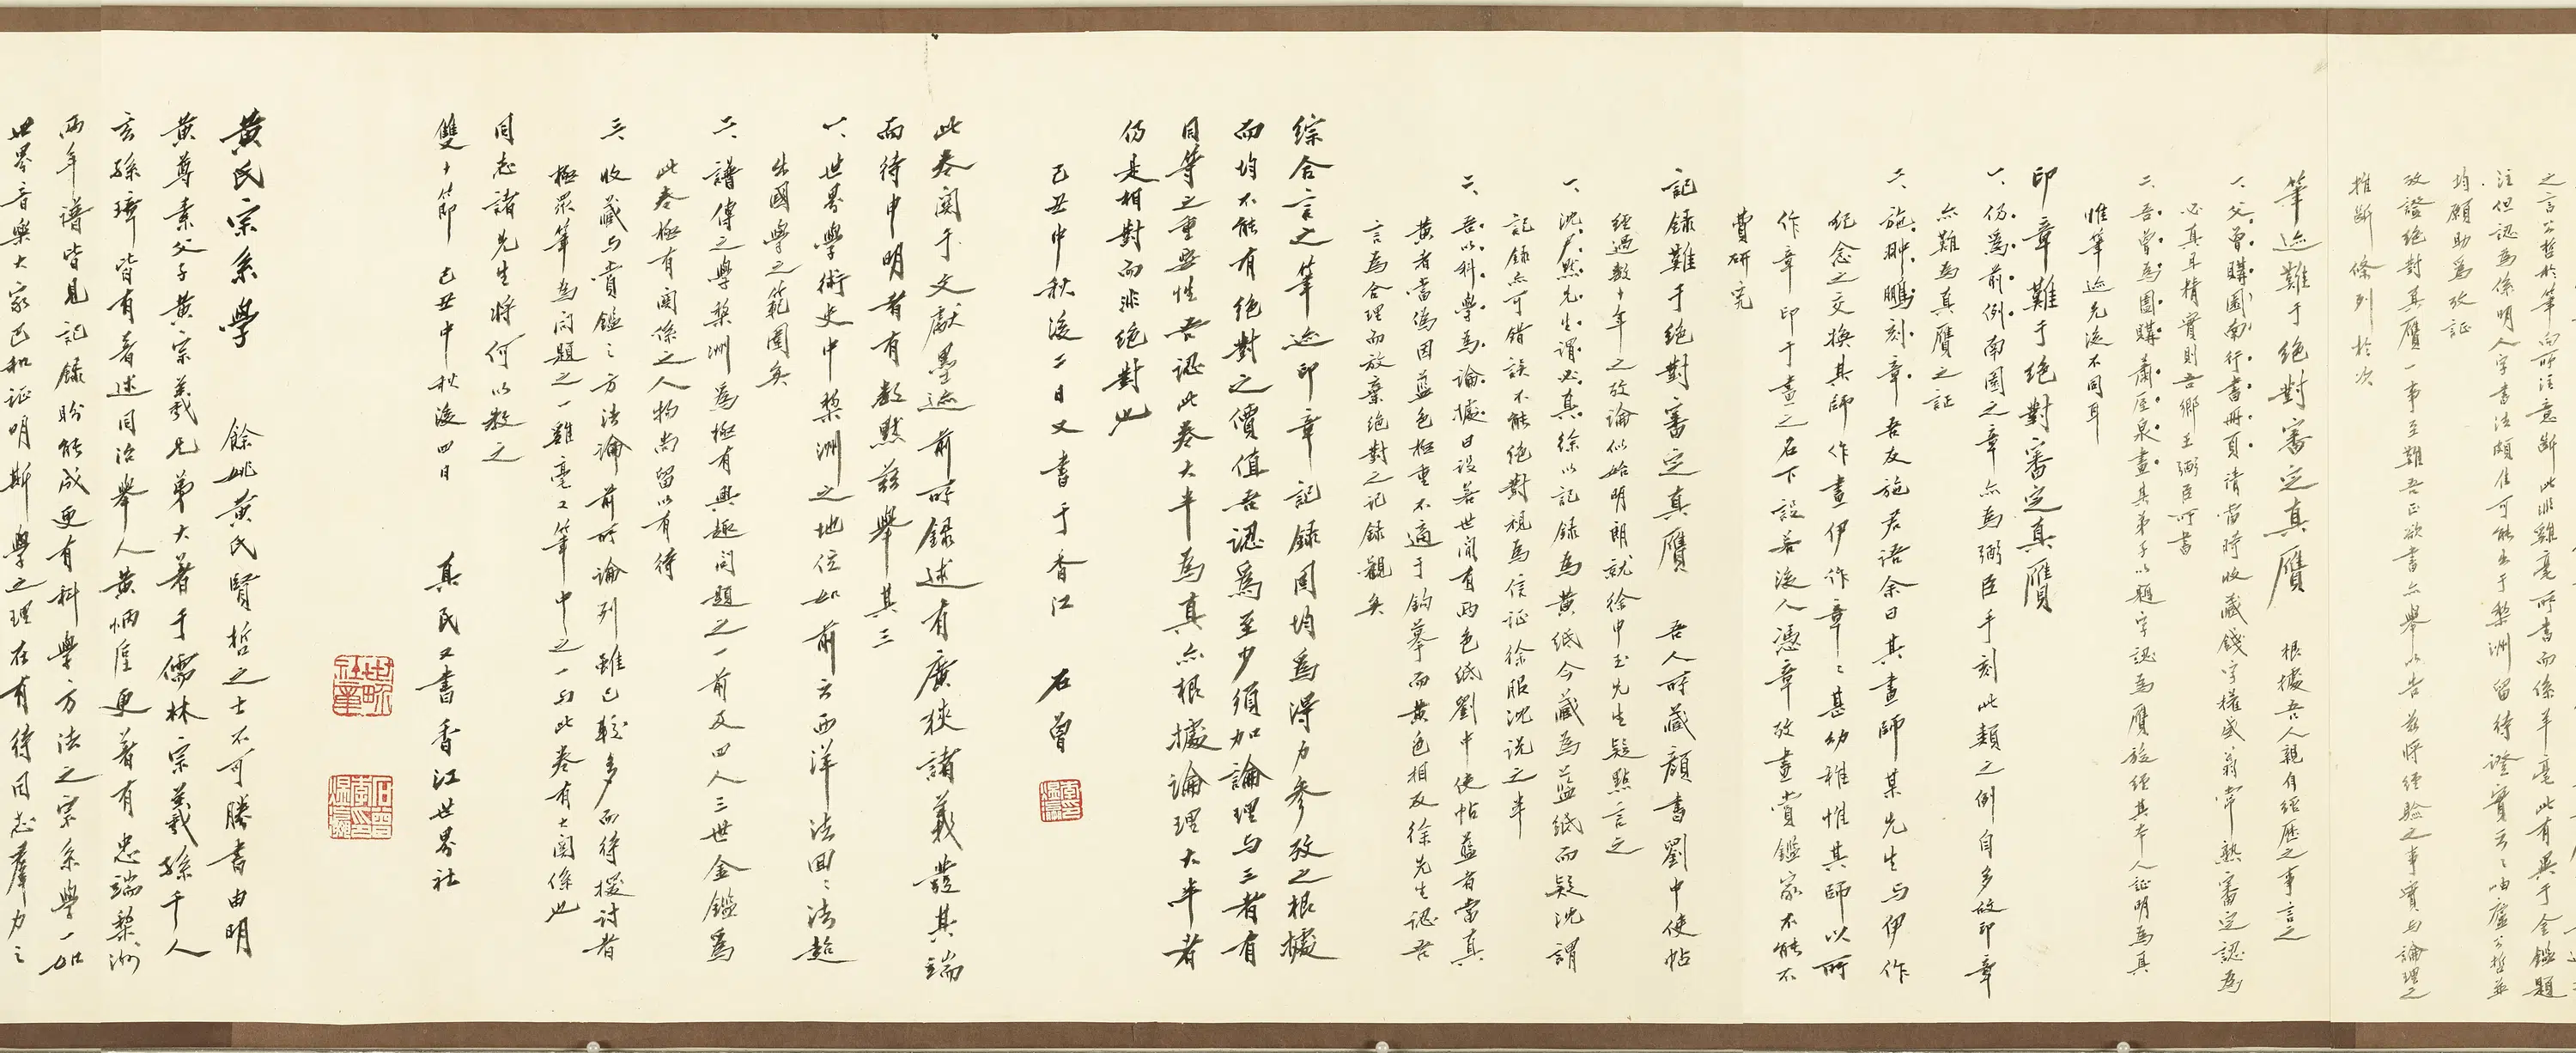 之言公哲於筆向所注意斷此非雞毫所書而係羊毫此有異于金鑑題
注但認為係明人字書法頗佳可能出于梨洲留待證實云云岫廬公哲並
均願助為攷証
攷證絕對真贗一事至難吾正欲書亦舉以告茲將經驗之事實與論理之
推斷條列於次
筆迹難于絕對審定真贗 根據吾人親身經歷之事言之
一、父曾購園南行書冊頁清當時收藏錢字樣盛翁常熟審定認為
必真耳精實則吾鄉王弼臣所書
二、吾曾為園購蕭厔泉畫其弟子以題字認為贗旋經其本人証明為真
惟筆迹先後不同耳
印章難于絕對審定真贗
一、仍為前例南園之章亦為弼臣手刻此類之例自多故印章
亦難為真贗之証
二、施翀鵬刻章吾友施君語余曰其畫師某先生与伊作
紀念之交換其師作畫伊作章章甚幼稚惟其師以所
作章印于畫之名下設若後人憑章攷畫賞鑑家不能不
費研究
記錄難于絕對審定真贗 吾人所藏顏書劉中使帖
經過數十年之攷論似始明朗就徐申玉先生疑點言之
一、沈尹默先生謂必真徐以記錄為黃紙今藏為藍紙而疑沈謂
記錄亦可錯誤不能絕對視為信証徐服沈說之半
二、吾以科學為論據曰設若世間有兩色紙劉中使帖藍者當真
黃者當偽因藍色極重不適于鈎摹而黃色相反徐先生認吾
言為合理而放棄絕對之記錄觀矣
綜合言之筆迹印章記錄固均為得力參攷之根據
而均不能有絕對之價值吾認為至少須加論理与三者有
同等之重要性吾認此卷大半為真亦根據論理大半者
仍是相對而非絕對也
己丑中秋後二日又書于香江 石曾
此卷關于文獻墨迹前所錄述有廣狹諸義豈其端
而待申明者有數點茲舉其三
一、世界學術史中梨洲之地位如前云西洋法固法超
出國學之範圍矣
二、譜傳之學梨洲為極有興趣問題之一前及四人三世金鑑為
此卷極有關係之人物尚留以有待
三、收藏与賞鑑之方法論前所論列雖已較多而待探討者
極眾筆為問題之一雞毫又筆中之一与此卷有大關係也
同志諸先生將何以教之
雙十節 己丑中秋後四日 真民又書香江世界社
世界社章
石曾李煜瀛
黃氏宗系學 餘姚黃氏賢哲之士不可勝書由明
黃尊素父子黃宗羲兄弟大著于儒林宗羲孫千人
玄孫璋皆有著述同治舉人黃炳垕更著有忠端梨洲
兩年譜皆見記錄盼能成更有科學方法之宗系學一如
世界音樂大家巴和証明斯學之理在有待同志羣力之